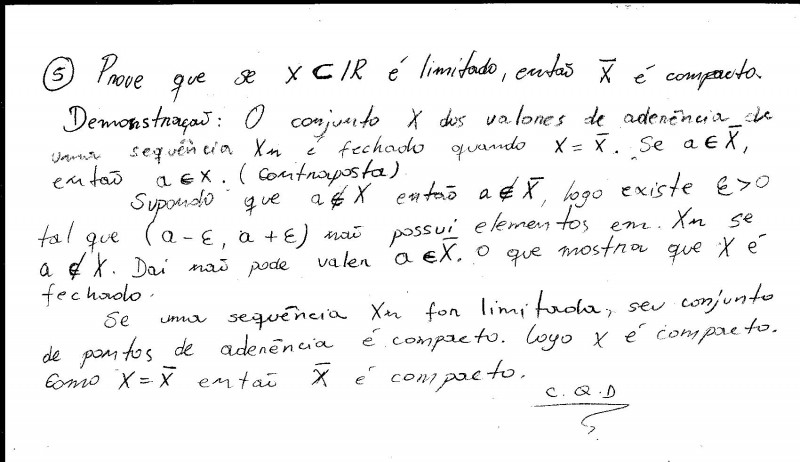 ⑤ Prove que se X ⊂ IR é limitado, então X̅ é compacto.
Demonstração: O conjunto X dos valores de aderência de
uma sequência Xn é fechado quando X = X̅. Se a ∈ X̅,
então a ∈ X. (Contraposta)
Supondo que a ∉ X então a ∉ X̅, logo existe ε>0
tal que (a - ε, a + ε) não possui elementos em Xn se
a ∉ X. Daí não pode valer a ∈ X̅. O que mostra que X é
fechado.
Se uma sequência Xn for limitada, seu conjunto
de pontos de aderência é compacto. Logo X é compacto.
Como X = X̅ então X̅ é compacto.
C.Q.D